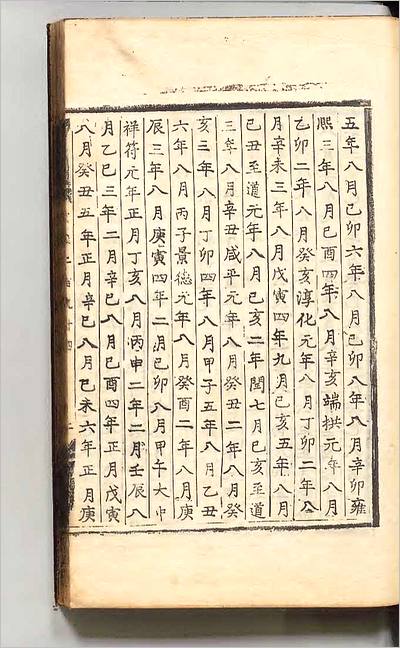 五年八月己卯六年八月己卯八年八月辛卯雍
熙三年八月己酉四年八月辛亥端拱元年八月
乙卯二年八月癸亥淳化元年八月丁卯二年八
月辛未三年八月戊寅四年九月己亥五年八月
己丑至道元年八月己亥二年閏七月己亥至道
三年八月辛丑咸平元年八月癸丑二年八月癸
亥三年八月丁卯四年八月甲子五年八月乙丑
六年八月丙子景德元年八月癸酉二年八月庚
辰三年八月庚寅四年二月己卯八月甲午大中
祥符元年正月丁亥八月丙申二年二月壬辰八
月乙巳三年二月辛巳八月己酉四年正月戊寅
八月癸丑五年正月辛巳八月己未六年正月庚